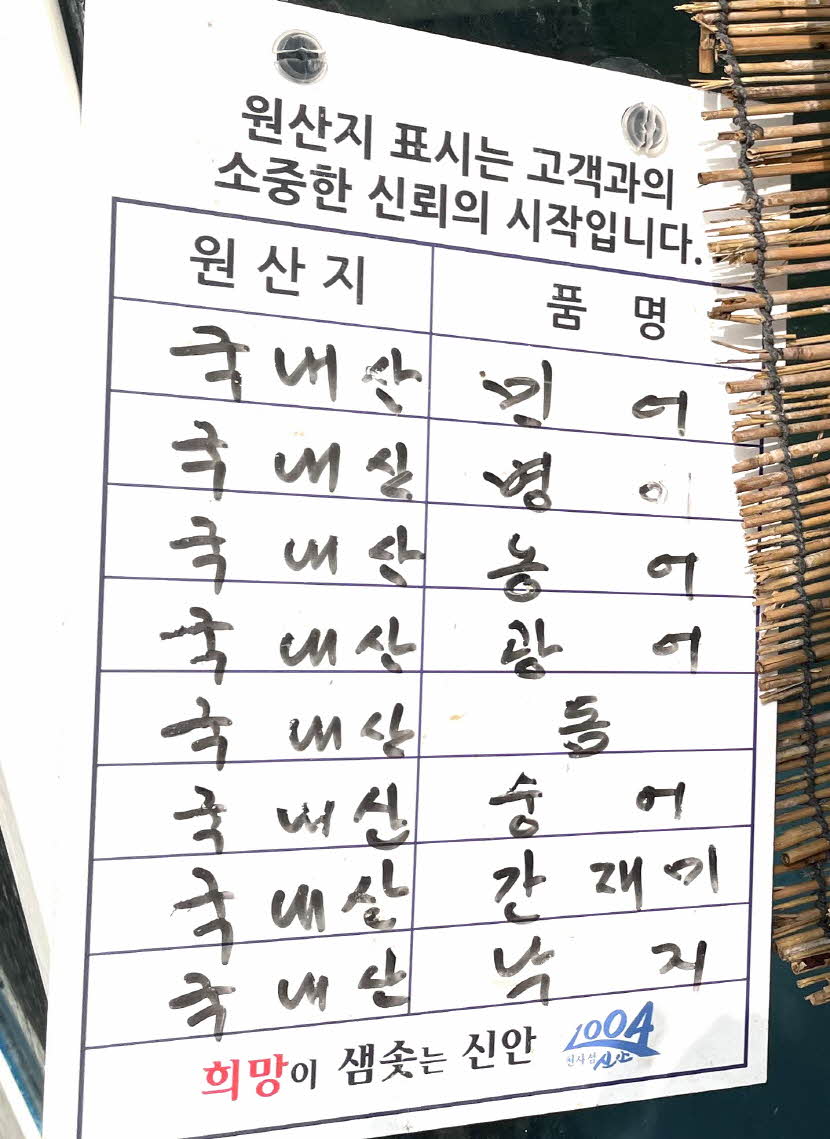 원산지 표시는 고객과의
소중한 신뢰의 시작입니다.
원산지 품명
국내산 민어
국내산 병어
국내산 농어
국내산 광어
국내산 돔
국내산 숭어
국내산 간재미
국내산 낙지
희망이 샘솟는 신안 1004
천사섬 신안